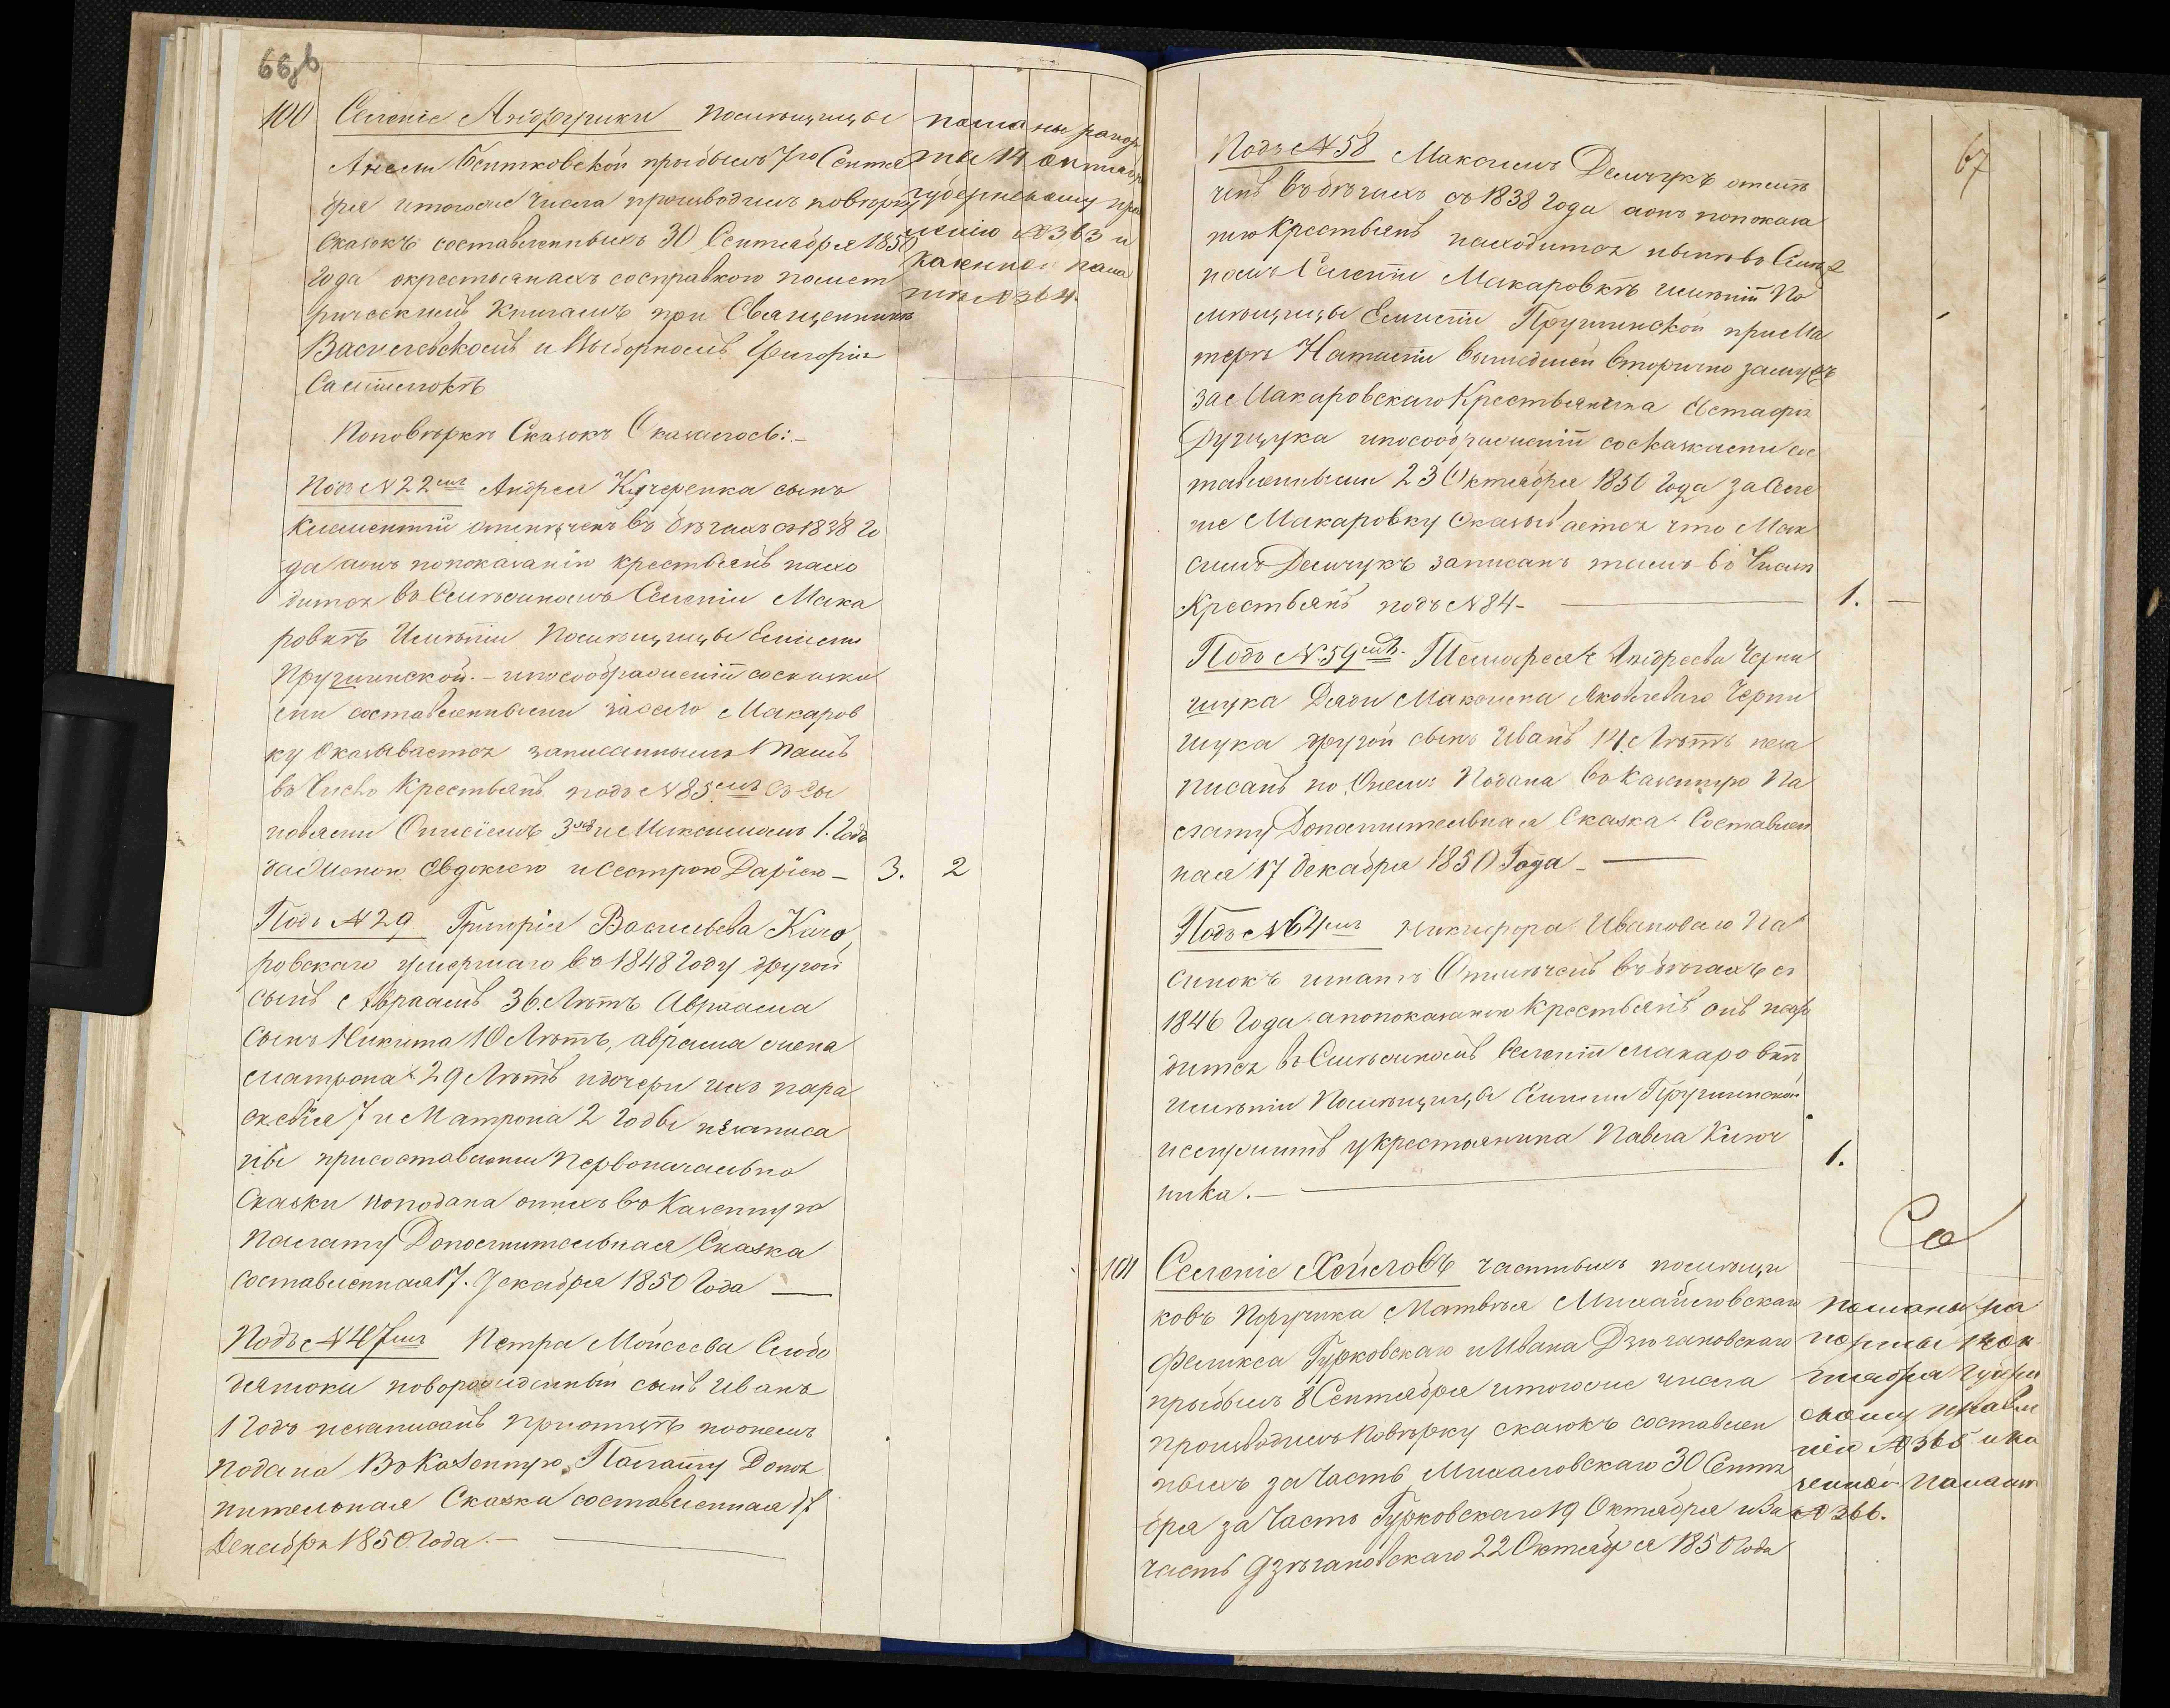 66об
100 Селеніе Андрушки помѣщицы
Анели Бентковской прыбылъ 7го Сентя
бря итогоже числа производилъ повѣрку
Сказокъ составленныхъ 30 Сентября 1850
года окрестьянахъ сосправкою помет
рическимъ Книгамъ при Священникѣ
Василевскомъ и Выборномъ Григоріи
поданы рапор
та 14 октяб
губернскому пра
вленію №363 и
казенной пала
тѣ №364.
Поповѣркѣ Сказокъ Оказалось:-
Подъ №22мъ Андрея Кучеренка сынъ
Климентій отмѣченъ въ бѣгахъ съ 1838 го
да аонъ попоказанію крестьянъ нахо
дится въ Смѣжномъ Селеніи Мака
ровкѣ Имѣніи Помѣщицы Емиліи
Прушинской.- ипосоображеніи сосказка
ми составленными засело Макаров
ку Оказывается записаннымъ тамъ
въ Число Крестьянъ подъ №85мъ съ сы
новьями Онисіемъ 3 и Максимомъ 1. Годъ
да Женою Евдокіею и Сестрою Даріею - 3. 2
Подъ №29 Григорія Васильева
ровскаго умершаго въ 1848 году другой
сынъ Авраамъ 36. Лѣтъ Авраама
Сынъ Никита 10 Лѣтъ, аврама жена
матрона 29 Лѣтъ идочери ихъ пара
скевія 7 и Матрона 2 годы незаписа
ны присоставленіи Первоначально
Сказки ноподана онихъ въ Казенную
Палату Дополнительная Сказка
составленная 17. Декабря 1850 Года —
Подъ №47мъ Петра Мойсеева Слобо
дянюка новорожденный сынъ Иванъ
1 Годъ незаписанъ Приотцѣ ноонемъ
подана въ Казенную Палату Допол
нительная Сказка составленная 17
Декабря 1850 Года.-
67
Подъ №58 Максимъ Демчукъ отмѣ
ченъ въ бѣгахъ съ 1838 Года аонъ попоказа
нію Крестьянъ находится нынѣ во Смѣж
номъ Селеніи Макаровкѣ имѣніи По
мѣщицы Емиліи Прушинской приМа
терѣ Наталіи вышедшей вторично замужъ
за Макаровскаго Крестьянина Евстафія
ипосоображеніи сосказками со
тавленными 23 Октября 1850 Года за Селе
ніе Макаровку Оказывается что Мак
симъ Демчукъ записанъ тамъ въ Числѣ
Крестьянъ подъ №84- 1. -
Подъ №59мъ Тимофея Андреева Черни
шука Дяди Максима Яковлеваго Черни
шука другой сынъ Иванъ 14. Лѣтъ неза
писанъ но Онемъ Подана въ Казенную Па
лату Дополнительная Сказка Составлен
ная 17 декабря 1850 Года -
Подъ №64мъ Никифора Иванова го Па
синокъ Отмѣченъ въ бѣгахъ съ
1846 Года апопоказанію Крестьянъ онъ нахо
дится въ Смѣжномъ Селеніи макаровкѣ
имѣніи Помѣщицы Емиліи Прушинской
ислужитъ укрестьянина Павла Ключ
ника.- 1.
Со
101 Селеніе Хейловъ частныхъ помѣщи
ковъ Поручика Матвѣя Михайловскаго
Феликса Гурковскаго и Ивана Дзюгановскаго
прыбылъ 8 Сентября итогоже числа
производилъ повѣрку сказокъ составлен
ныхъ за Часть Михаловскаго 30 Сентя
бря за Часть Гурковскаго 19 Октября и За
часть Дзюгановскаго 22 Октября 1850 года
поданы ра
порты 14 ок
тября Губерн
скому правле
нію №365 и Ка
зенной Палатѣ
№366.